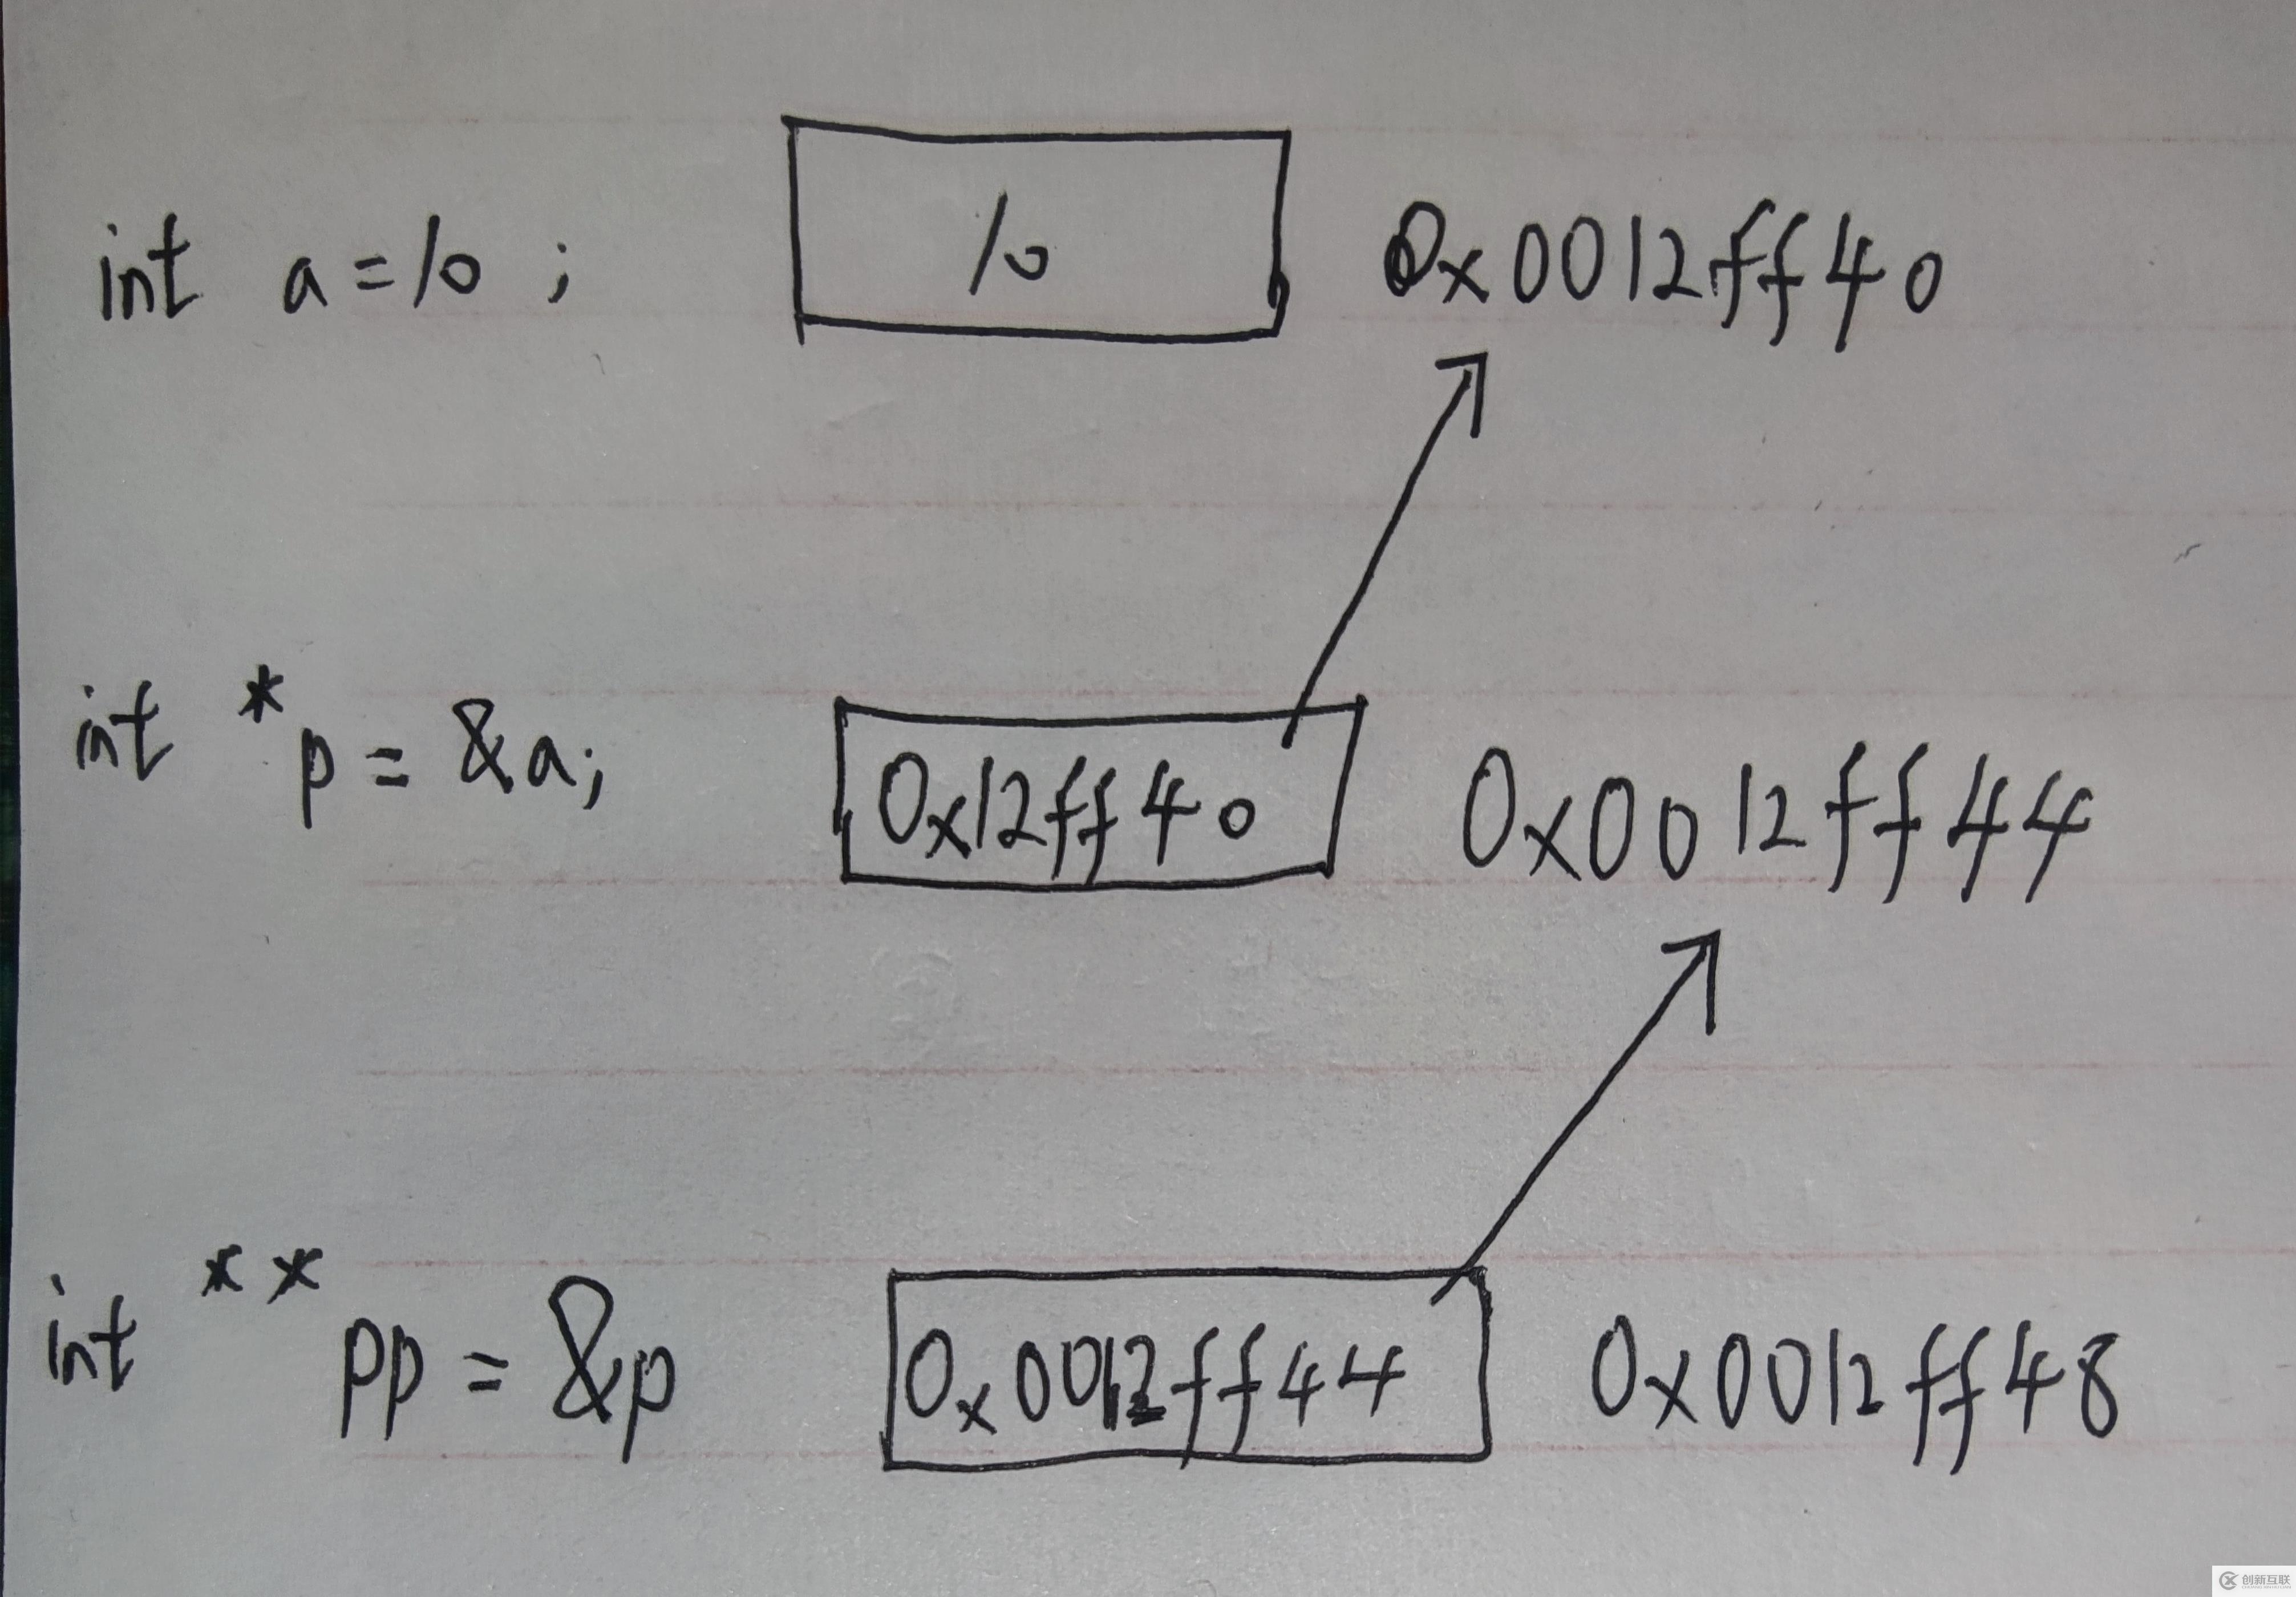 int a=10; 10 0x0012ff40
int *p = &a; 0x12ff40 0x0012ff44
int **pp = &p 0x0012ff44 0x0012ff48
创新互联